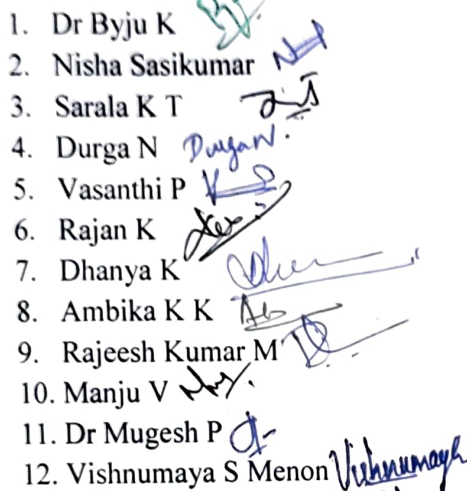 1. Dr Byju K
2. Nisha Sasikumar
3. Sarala K T
4. Durga N Durga N.
5. Vasanthi P
6. Rajan K
7. Dhanya K
8. Ambika K K
9. Rajeesh Kumar M
10. Manju V
11. Dr Mugesh P
12. Vishnumaya S Menon Vishnumaya